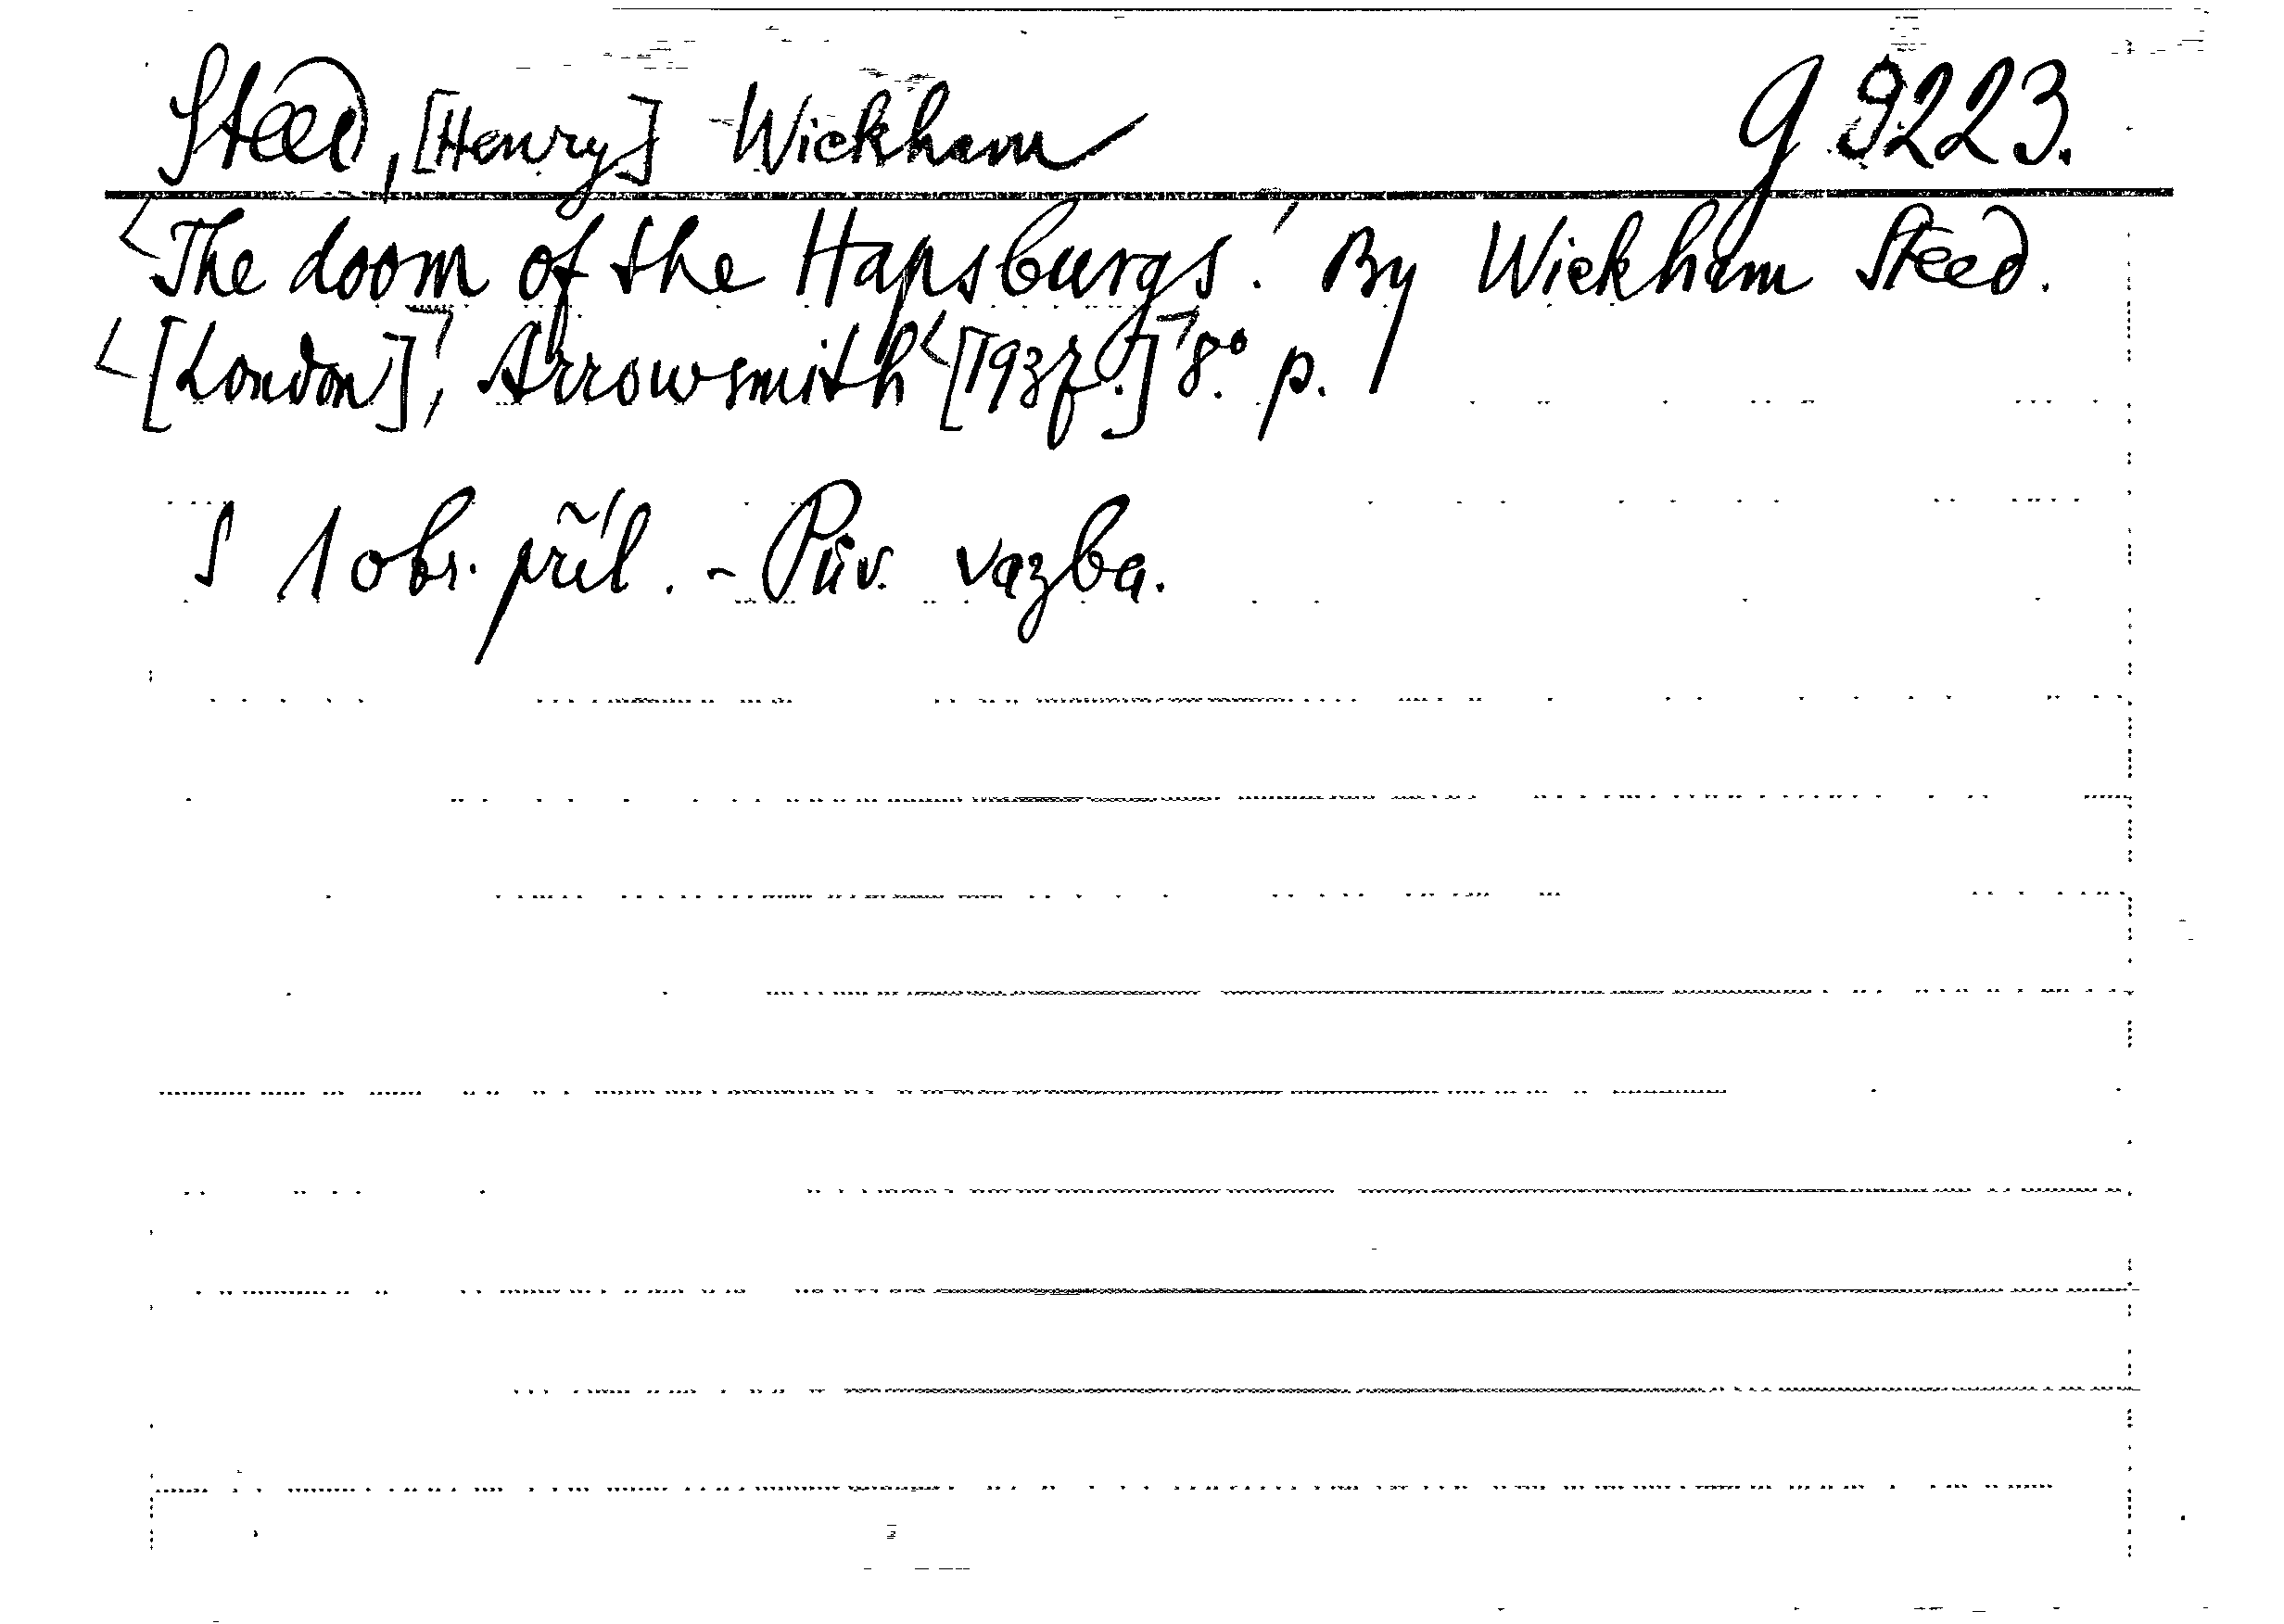 Steed, [Henry] Wickham g 9223.
The doom of the Hapsburgs. By Wickham Steed.
[London], Arrowsmith [1937.] 8° p.
S 1 obr. příl. - Pův. vazba.